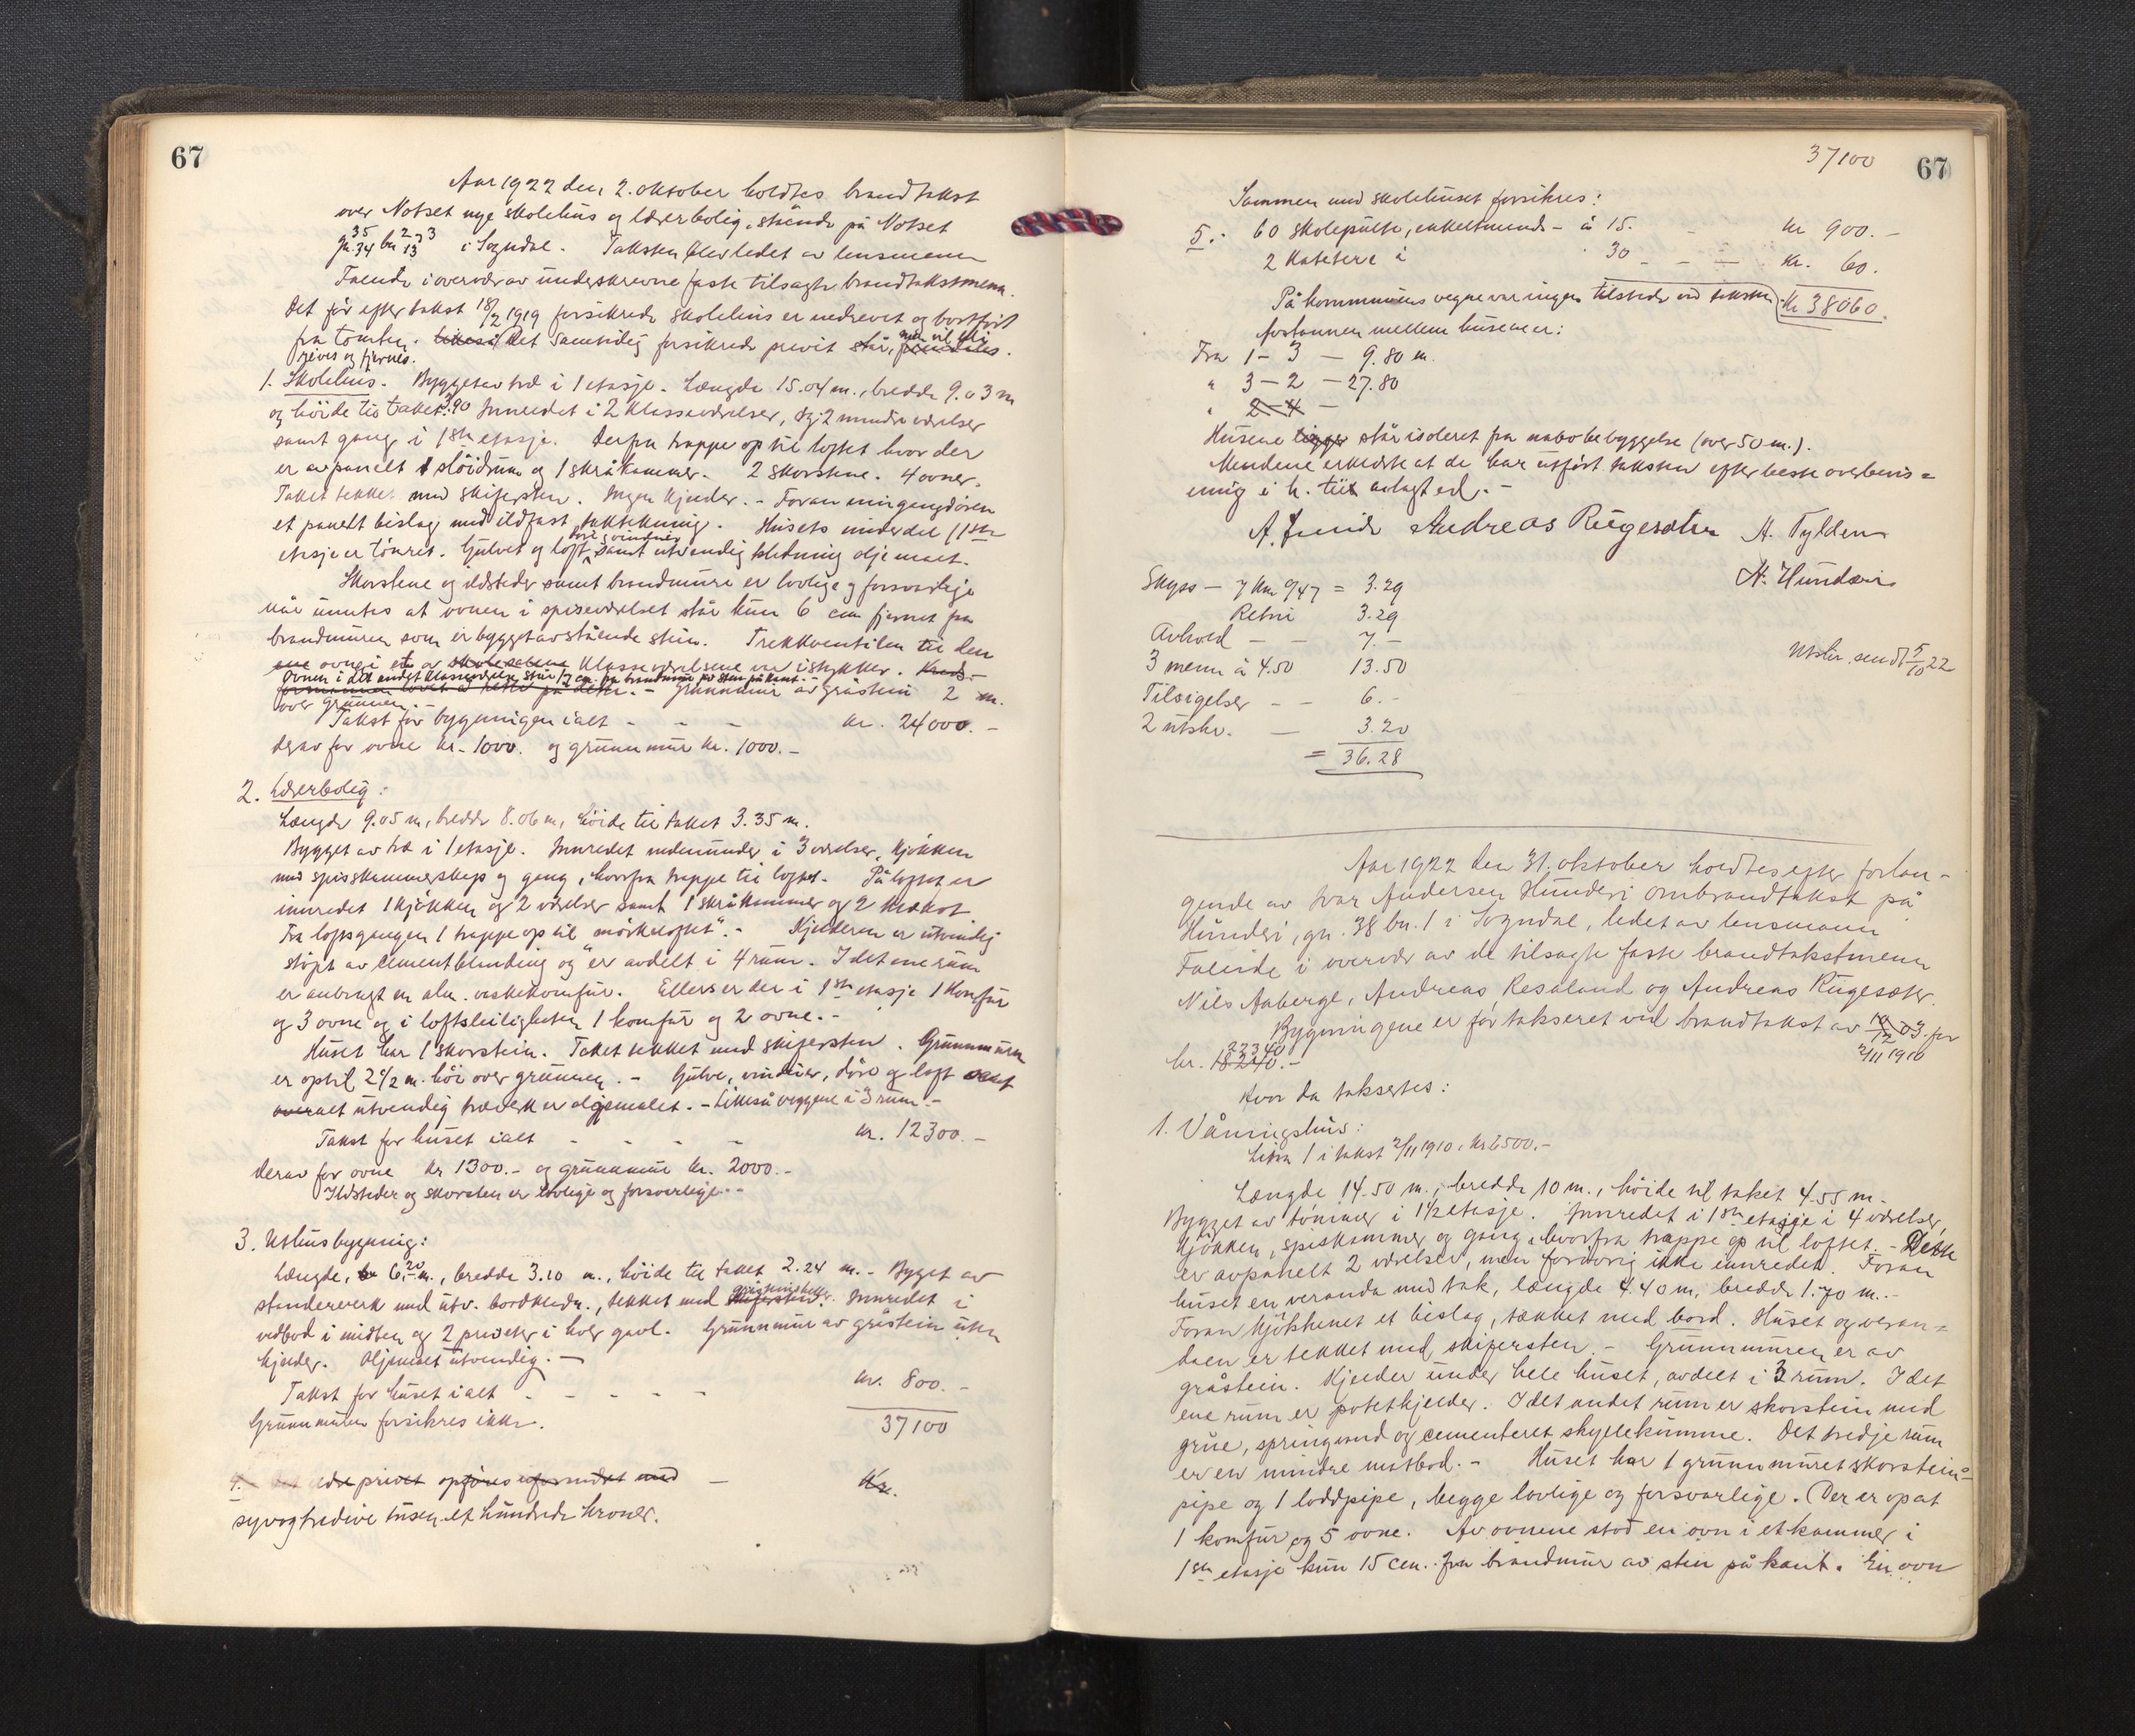 67
Aar 1922 den 2. oktober holdtes brandtakst
over Notset nye skolehus og lærerbolig, stående på Notset
gn. 34 bn. 13 i Sogndal. Taksten blev ledet av lensmann
35 2 3
Faleide i overvær av underskrevne faste tilsagte brandtakstmenn.
Det før efter takst 18/2 1919 forsikrede skolehus er nedrevet og bortført
fra tomten. Det samtidig forsikrede privit står, men vil bli
rives og fjernes.
1. Skolehus. Bygget av træ i 1 etasje. Længde 15.04 m., bredde 9.03 m
og høide til taket 3.90 Innredet i 2 klasseværelser, 2 mindre værelser
samt gang i 1ste etasje. Derfra trappe op til loftet hvor der
er avpanelt 1 sløidrum og 1 skråkammer. 2 skorstene. 4 ovner.
Taket tekket med skifersten. Ingen kjelder. - Foran inngangsdøren
et panelt bislag med ildfast taktekning. Husets underdel (1ste
etasje er tømret. Gulvet og loft, samt utvendig kledning oljemalt.
Skorstene og ildsteder samt brandmure er lovlige og forsvarlige
når unntas at ovnen i spiseværelset står kun 6 cm fjernet fra
brandmuren som er bygget av stående sten. Trekkventilen til den
ene ovn i et av skolesalene klasseværelsene var istykker.
Ovnen i det andet klasseværelse står 17 cm. fra brandmur av sten på kant. -
formannen lovet at rette på dette. - Grunnmur av gråstein 2 m.
over grunnen. -
Takst for bygningen ialt - - - kr. 24000. -
derav for ovne kr. 1000. og grunnmur kr. 1000. -
2. Lærerbolig:
Længde 9.05 m, bredde 8.06 m, høide til taket 3.35 m.
Bygget av træ i 1 etasje. Innredet nedenunder i 3 værelser, kjøkken
med spisskammerskap og gang, hvorfra trappe til loftet. På loftet er
innredet 1 kjøkken og 2 værelser samt 1 skråkammer og 2 kukot.
Fra loftsgangen 1 trappe op til "mørkeloftet". - Kjelderen er utvendig
støpt av cementblanding og er avdelt i 4 rum. I det ene rum
er anbragt en alm. vaskekomfur. Ellers er der i 1ste etasje 1 komfur
og 3 ovne og i loftsleiligheten 1 komfur og 2 ovne. -
Huset har 1 skorstein. Taket tekket med skifersten. Grunnmuren
er optil 2 1/2 m. høi over grunnen. - Gulve, vinduer, døre og loft samt
overalt utvendig træverk er oljemalet. - Likeså veggene i 3 rum. -
Takst for huset ialt - - - - kr. 12300. -
Derav for ovne kr 1300. - og grunnmur kr. 2000. -
Ildsteder og skorsten er lovlige og forsvarlige. -
3. Uthusbygning:
Længde, 6.20 m., bredde 3.10 m., høide til taket 2.24 m. - Byget av
stenderverk med utv. bordkledn., tekket med skifersten. Innredet i
vedbod i midten og 2 priveter i hver gavl. Grunnmur av gråstein uten
kjelder. Oljemalet utvendig. -
Takst for huset ialt - - - - - kr. 800. -
Grunnmuren forsikres ikke.
37100
4. Det ædre privet opføres uforandret med - Kr.
syvogtredive tusen et hundrede kroner.
37100
67
Sammen med skolehuset forsikres:
5. 60 skolepulte, enkeltmands - à 15. - kr 900. -
2 katetere à 30 - - - kr. 60.
På kommunens vegne var ingen tilstede ved taksten. Kr 38060.
Avstannen mellem husene er:
Fra 1 - 3 - 9.80 m.
" 3 - 2 - 27.80
" 2 - 4 -
Husene ligger står isoleret fra nabobebyggelse (over 50 m.).
Mendene erklærte at de har utført taksten efter beste overbevis=
ning i h. til avlagt ed. -
A. Faleide Andreas Rugesæter A. Tylden
N. Hundere
Skyss - 7 km o/47 = 3.29
Retur 3.29
Avhold - - 7. -
3 menn à 4.50 13.50
Tilsigelser - - 6. -
2 utskr. - 3.20
= 36.28
Utskr. sendt 5/10 22
Aar 1922 den 31. oktober holdtes efter forlan-
gende av Ivar Andersen Hunderi ombrandtakst på
Hunderi, gn. 38 bn. 1 i Sogndal, ledet av lensmann
Faleide i overvær av de tilsagte faste brandtakstmenn
Nils Aaberge, Andreas Resaland og Andreas Rugesæter.
Bygningene er før takseret ved brandtakst av 10/12 03. for
2/11 1910
22340
kr. 18240. -
Hvor da taksertes:
1. Våningshus:
Litra 1 i takst 2/11 1910, kr 6500. -
Længde 14.50 m., bredde 10 m., høide til taket 4.55 m -
Bygget av tømmer i 1 1/2 etasje. Innredet i 1ste etasje i 4 værelser,
kjøkken, spiskammer og gang, hvorfra trappe op til loftet. - Dette
er avpanelt 2 værelser, men forøvrig ikke innredet. Foran
huset en veranda med tak, længde 4.40 m, bredde 1.70 m. -
Foran kjøkkenet et bislag, tækket med bord. Huset og veran=
daen er tekket med skifersten. - Grunnmuren er av
gråstein. Kjelder under hele huset, avdelt i 3 rum. I det
ene rum er potetkjelder. I det andet rum er skorstein med
grue, springvand og cementeret skyllekumme. Det tredje rum
er en mindre matbod. - Huset har 1 grunnmuret skorsteins-
pipe og 1 loddpipe, begge lovlige og forsvarlige. Der er opsat
1 komfur og 5 ovne. Av ovnene stod en ovn i et kammer i
1ste etasje kun 15 cm. fra brandmur av sten på kant. En ovn